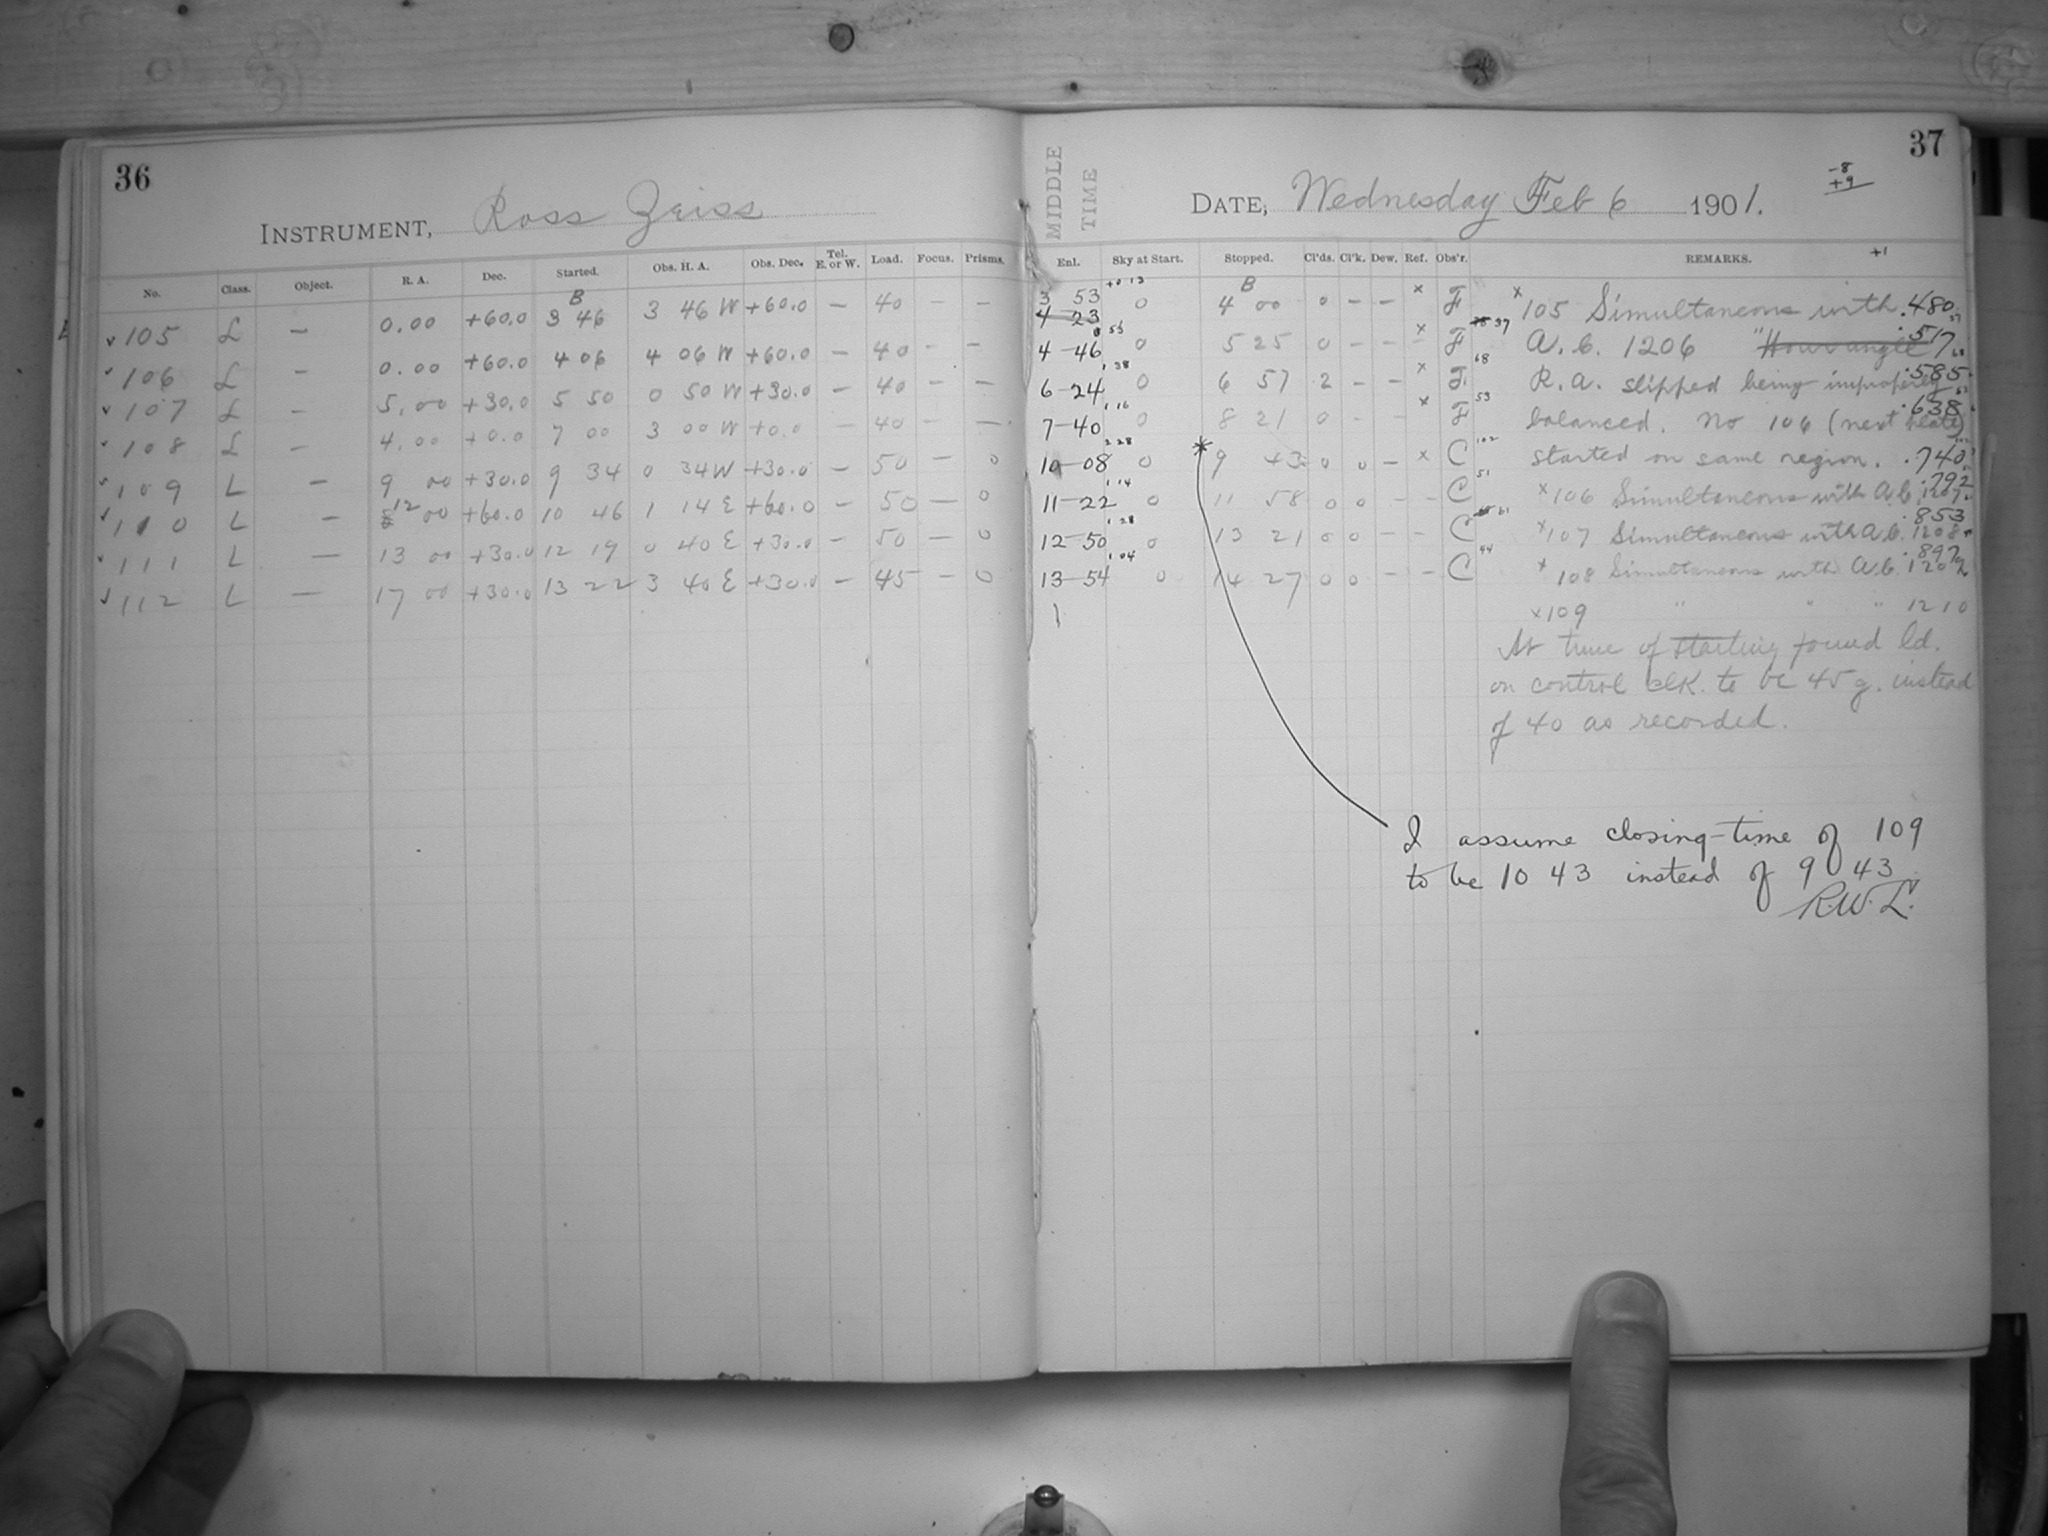 36
INSTRUMENT, Ross Zeiss
No. Class. Object. R. A. Dec. Started. Obs. H. A. Obs. Dec. Tel. E. or W. Load. Focus. Prisms.
B
105 L — 0.00 +60.0 3 46 3 46 W +60.0 — 40 — —
106 L — 0.00 +60.0 4 06 4 06 W +60.0 — 40 — —
107 L — 5.00 +30.0 5 50 0 50 W +30.0 — 40 — —
108 L — 4.00 +0.0 7 00 3 00 W +0.0 — 40 — —
109 L — 9 00 +30.0 9 34 0 34 W +30.0 — 50 — 0
110 L — 12 00 +60.0 10 46 1 14 E +60.0 — 50 — 0
111 L — 13 00 +30.0 12 19 0 40 E +30.0 — 50 — 0
112 L — 17 00 +30.0 13 22 3 40 E +30.0 — 45 — 0
37
MIDDLE TIME
DATE, Wednesday Feb 6 1901.
-8
+9
+1
Enl. Sky at Start. Stopped. Cl'ds. Cl'k. Dew. Ref. Obs'r. REMARKS.
B
3 53 +0 13 0 4 00 0 — — x F
4 23
4-46 0 5 25 0 — — x F 37
6-24 1 38 0 6 57 2 — — x F. 68
7-40 1 16 0 8 21 0 — — x F 53
10-08 2 28 0 * 9 43 0 0 — x C 102
11-22 1 14 0 11 58 0 0 — — C 51
12-50 1 28 0 13 21 0 0 — — C 61
13-54 1 04 0 14 27 0 0 — — C 44
x 105 Simultaneous with .480
A.C. 1206 "Hour angle .517
R.A. slipped being improperly .585
balanced. No 106 (next plate) .638
started on same region. .740
x 106 Simultaneous with A.C. 1207 .792
x 107 Simultaneous with A.C. 1208 .853
x 108 Simultaneous with A.C. .897
x 109 " " " 1210
At time of starting found ld.
on control clk. to be 45 g. instead
of 40 as recorded.
I assume closing-time of 109
to be 10 43 instead of 9 43
R.W.L.